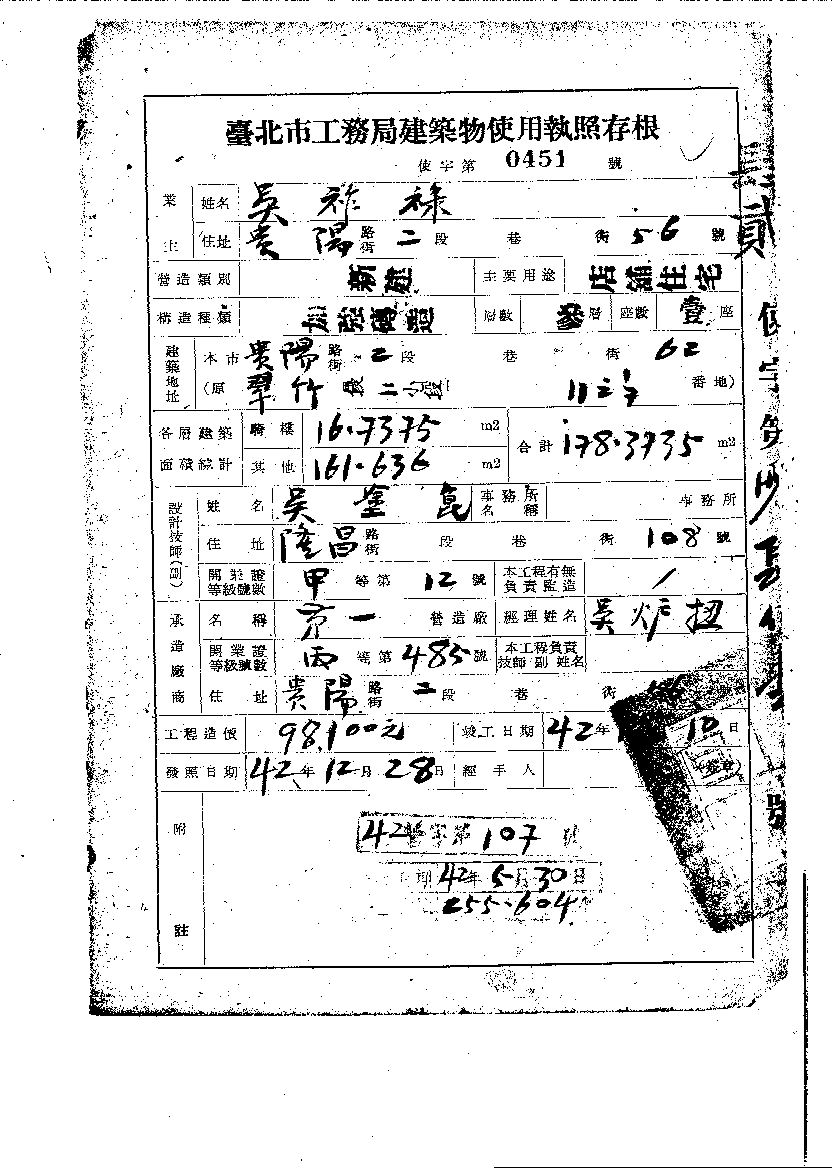 臺北市工務局建築物使用執照存根
使字第 0451 號
業主 姓名 吳祚祿
住址 貴陽 路街 二 段 巷 街 56 號
營造類別 新建 主要用途 店舖住宅
構造種類 加強磚造 層數 參 層 座數 壹 座
建築地址 本市 貴陽 路街 二 段 巷 街 62
(原 翠竹 段 二 小段 番地)
各層建築面積綜計 騎樓 16.7375 m2 合計 178.3735 m2
其他 161.636 m2
設計技師(副) 姓名 吳塗昆 事務所名稱 事務所
住址 隆昌 路街 段 巷 街 108 號
開業證等級號數 甲 等第 12 號 本工程有無負責監造 /
承造廠商 名稱 第一 營造廠 經理姓名 吳炉扭
開業證等級號數 丙 等第 485 號 本工程負責技師副姓名
住址 貴陽 路街 二 段 巷 街 號
工程造價 98,100元 竣工日期 42 年 10 日
發照日期 42 年 12 月 28 日 經手人
附註
42 營字第 107 號
期 42 年 5 月 30 日
255.604
貳 使字第
號